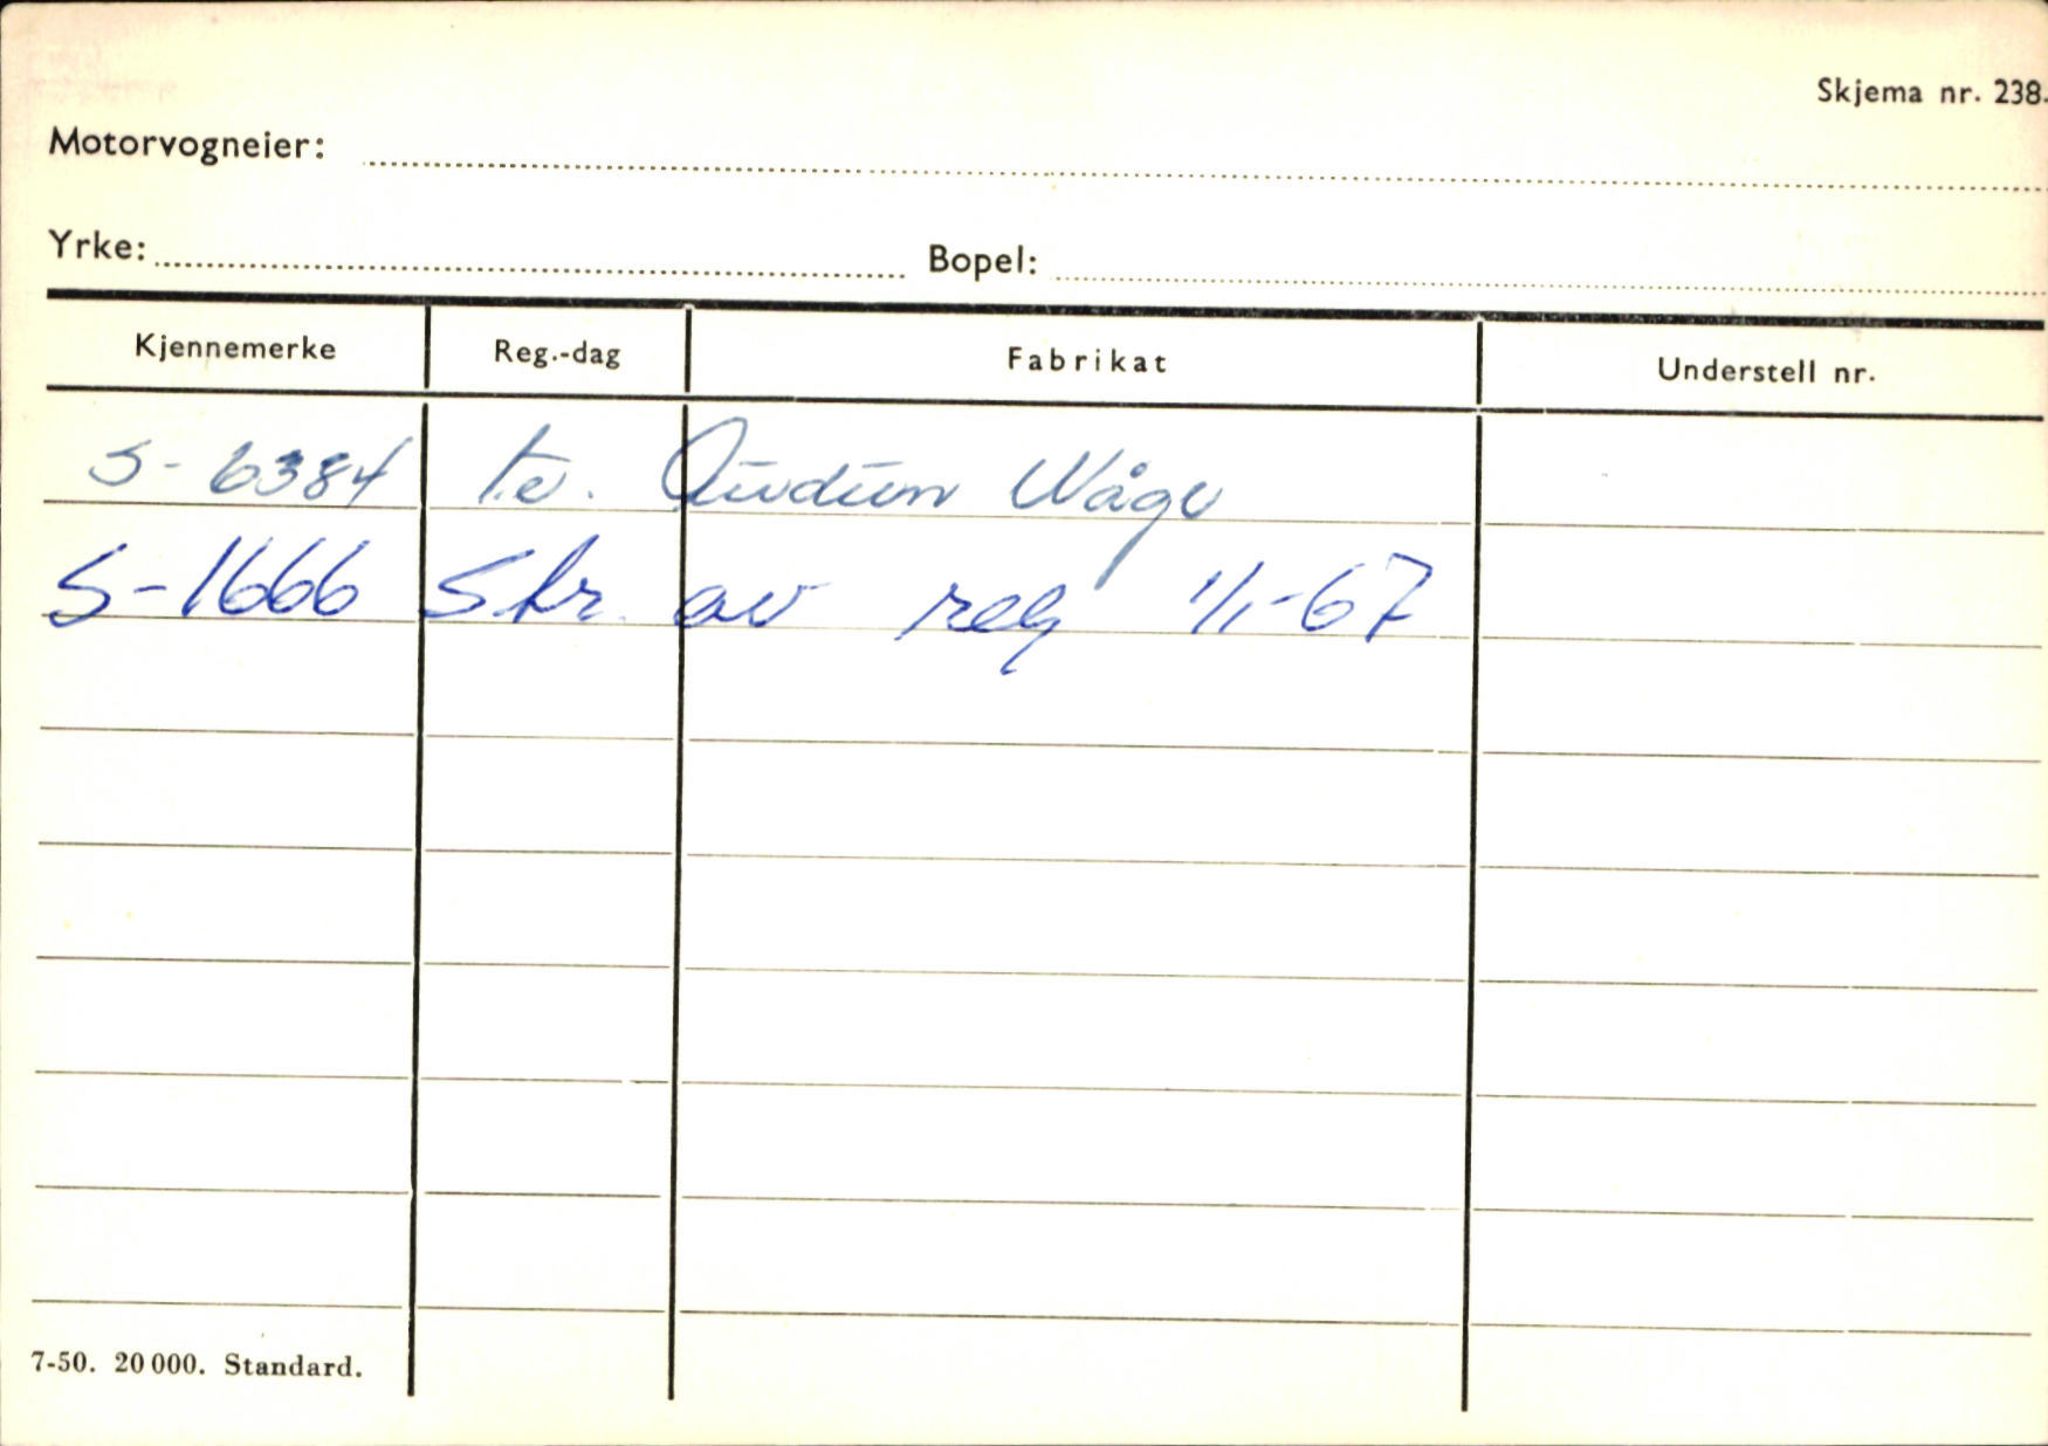 Skjema nr. 238.
Motorvogneier:
Yrke: Bopel:
Kjennemerke Reg.-dag Fabrikat Understell nr.
S-6384 t.e. Audun Våge
S-1666 Skr. av reg 1/1-67
7-50. 20 000. Standard.